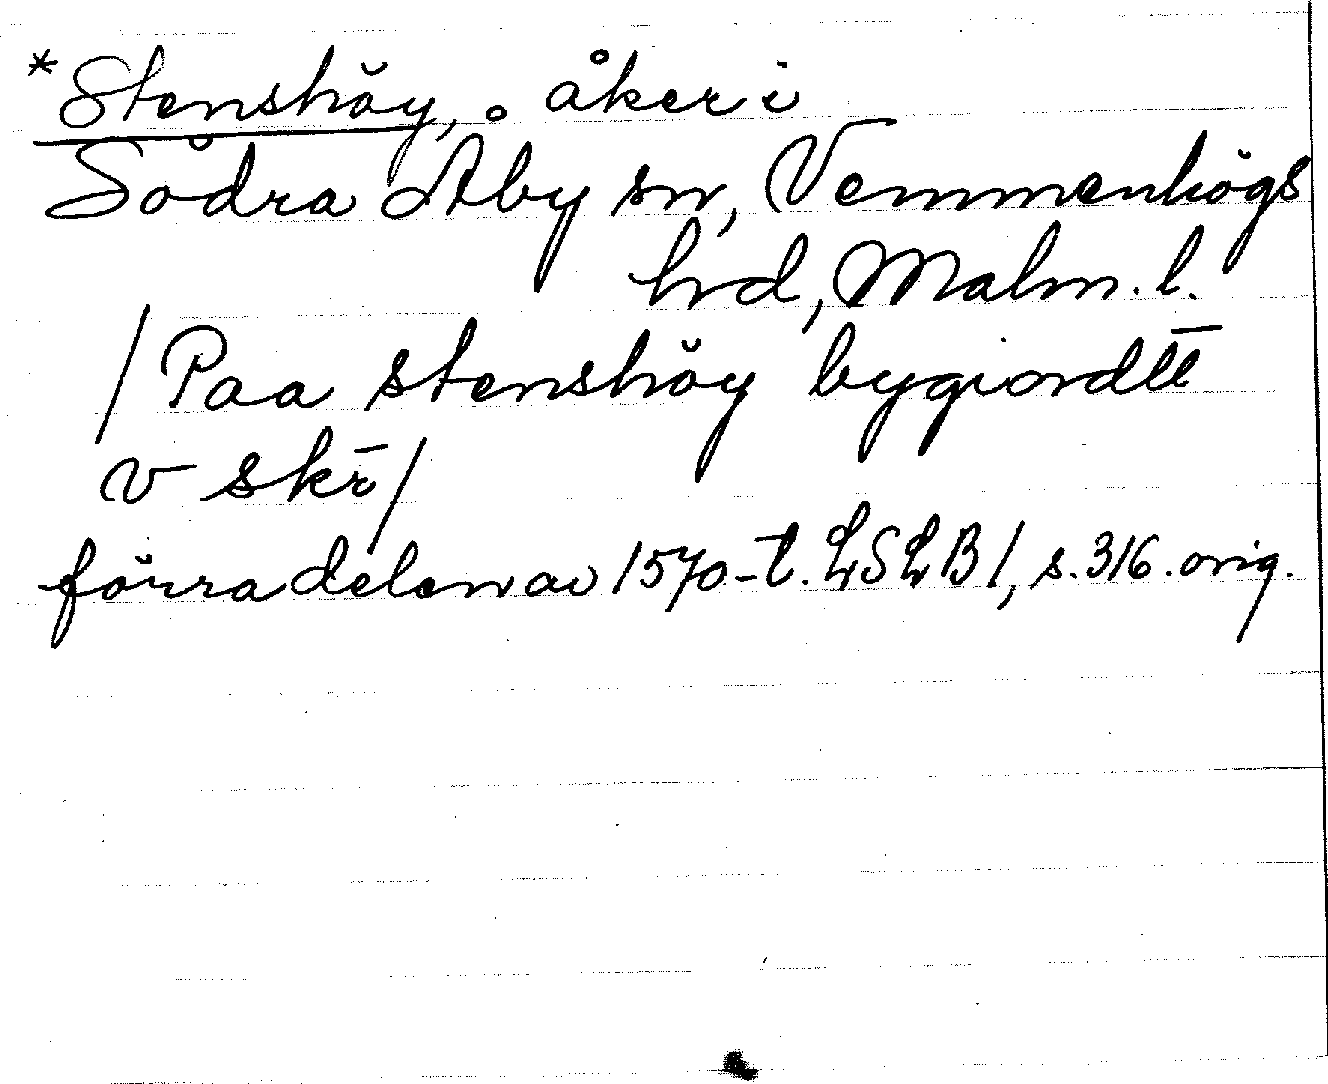 *Stenshöy, åker i
Södra Åby sn, Vemmenhögs
hd, Malm. l.
/Paa stenshöy bygiordtt̄
v skr̄/
förra delen av 1570-t. LSLB 1, s. 316. orig.